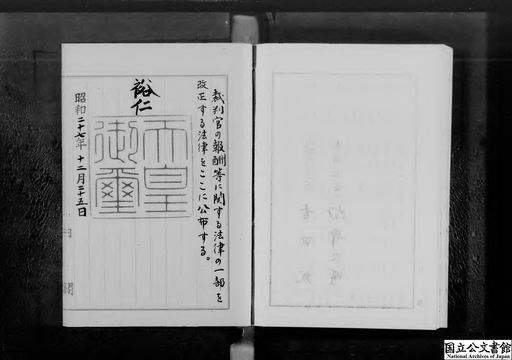 裁判官の報酬等に関する法律の一部を
改正する法律をここに公布する。
裕仁
天皇
御璽
昭和二十七年十二月二十五日
国立公文書館
National Archives of Japan